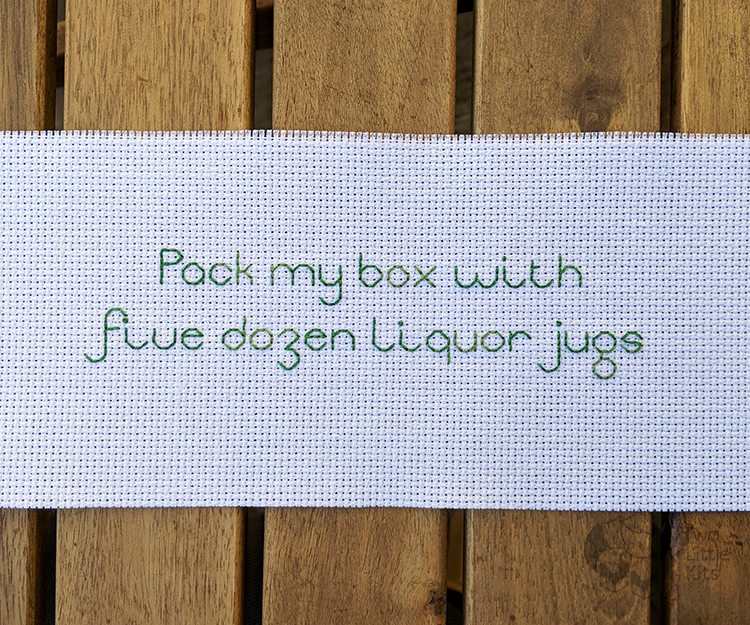 Pack my box with
five dozen liquor jugs
Two
Little
Kits